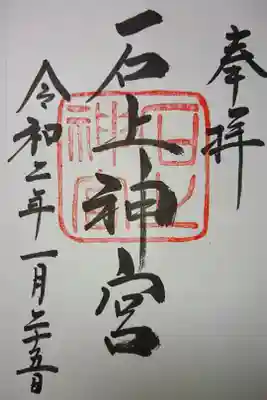 奉拝
石上神宮
石上
神宮
令和二年一月二十五日